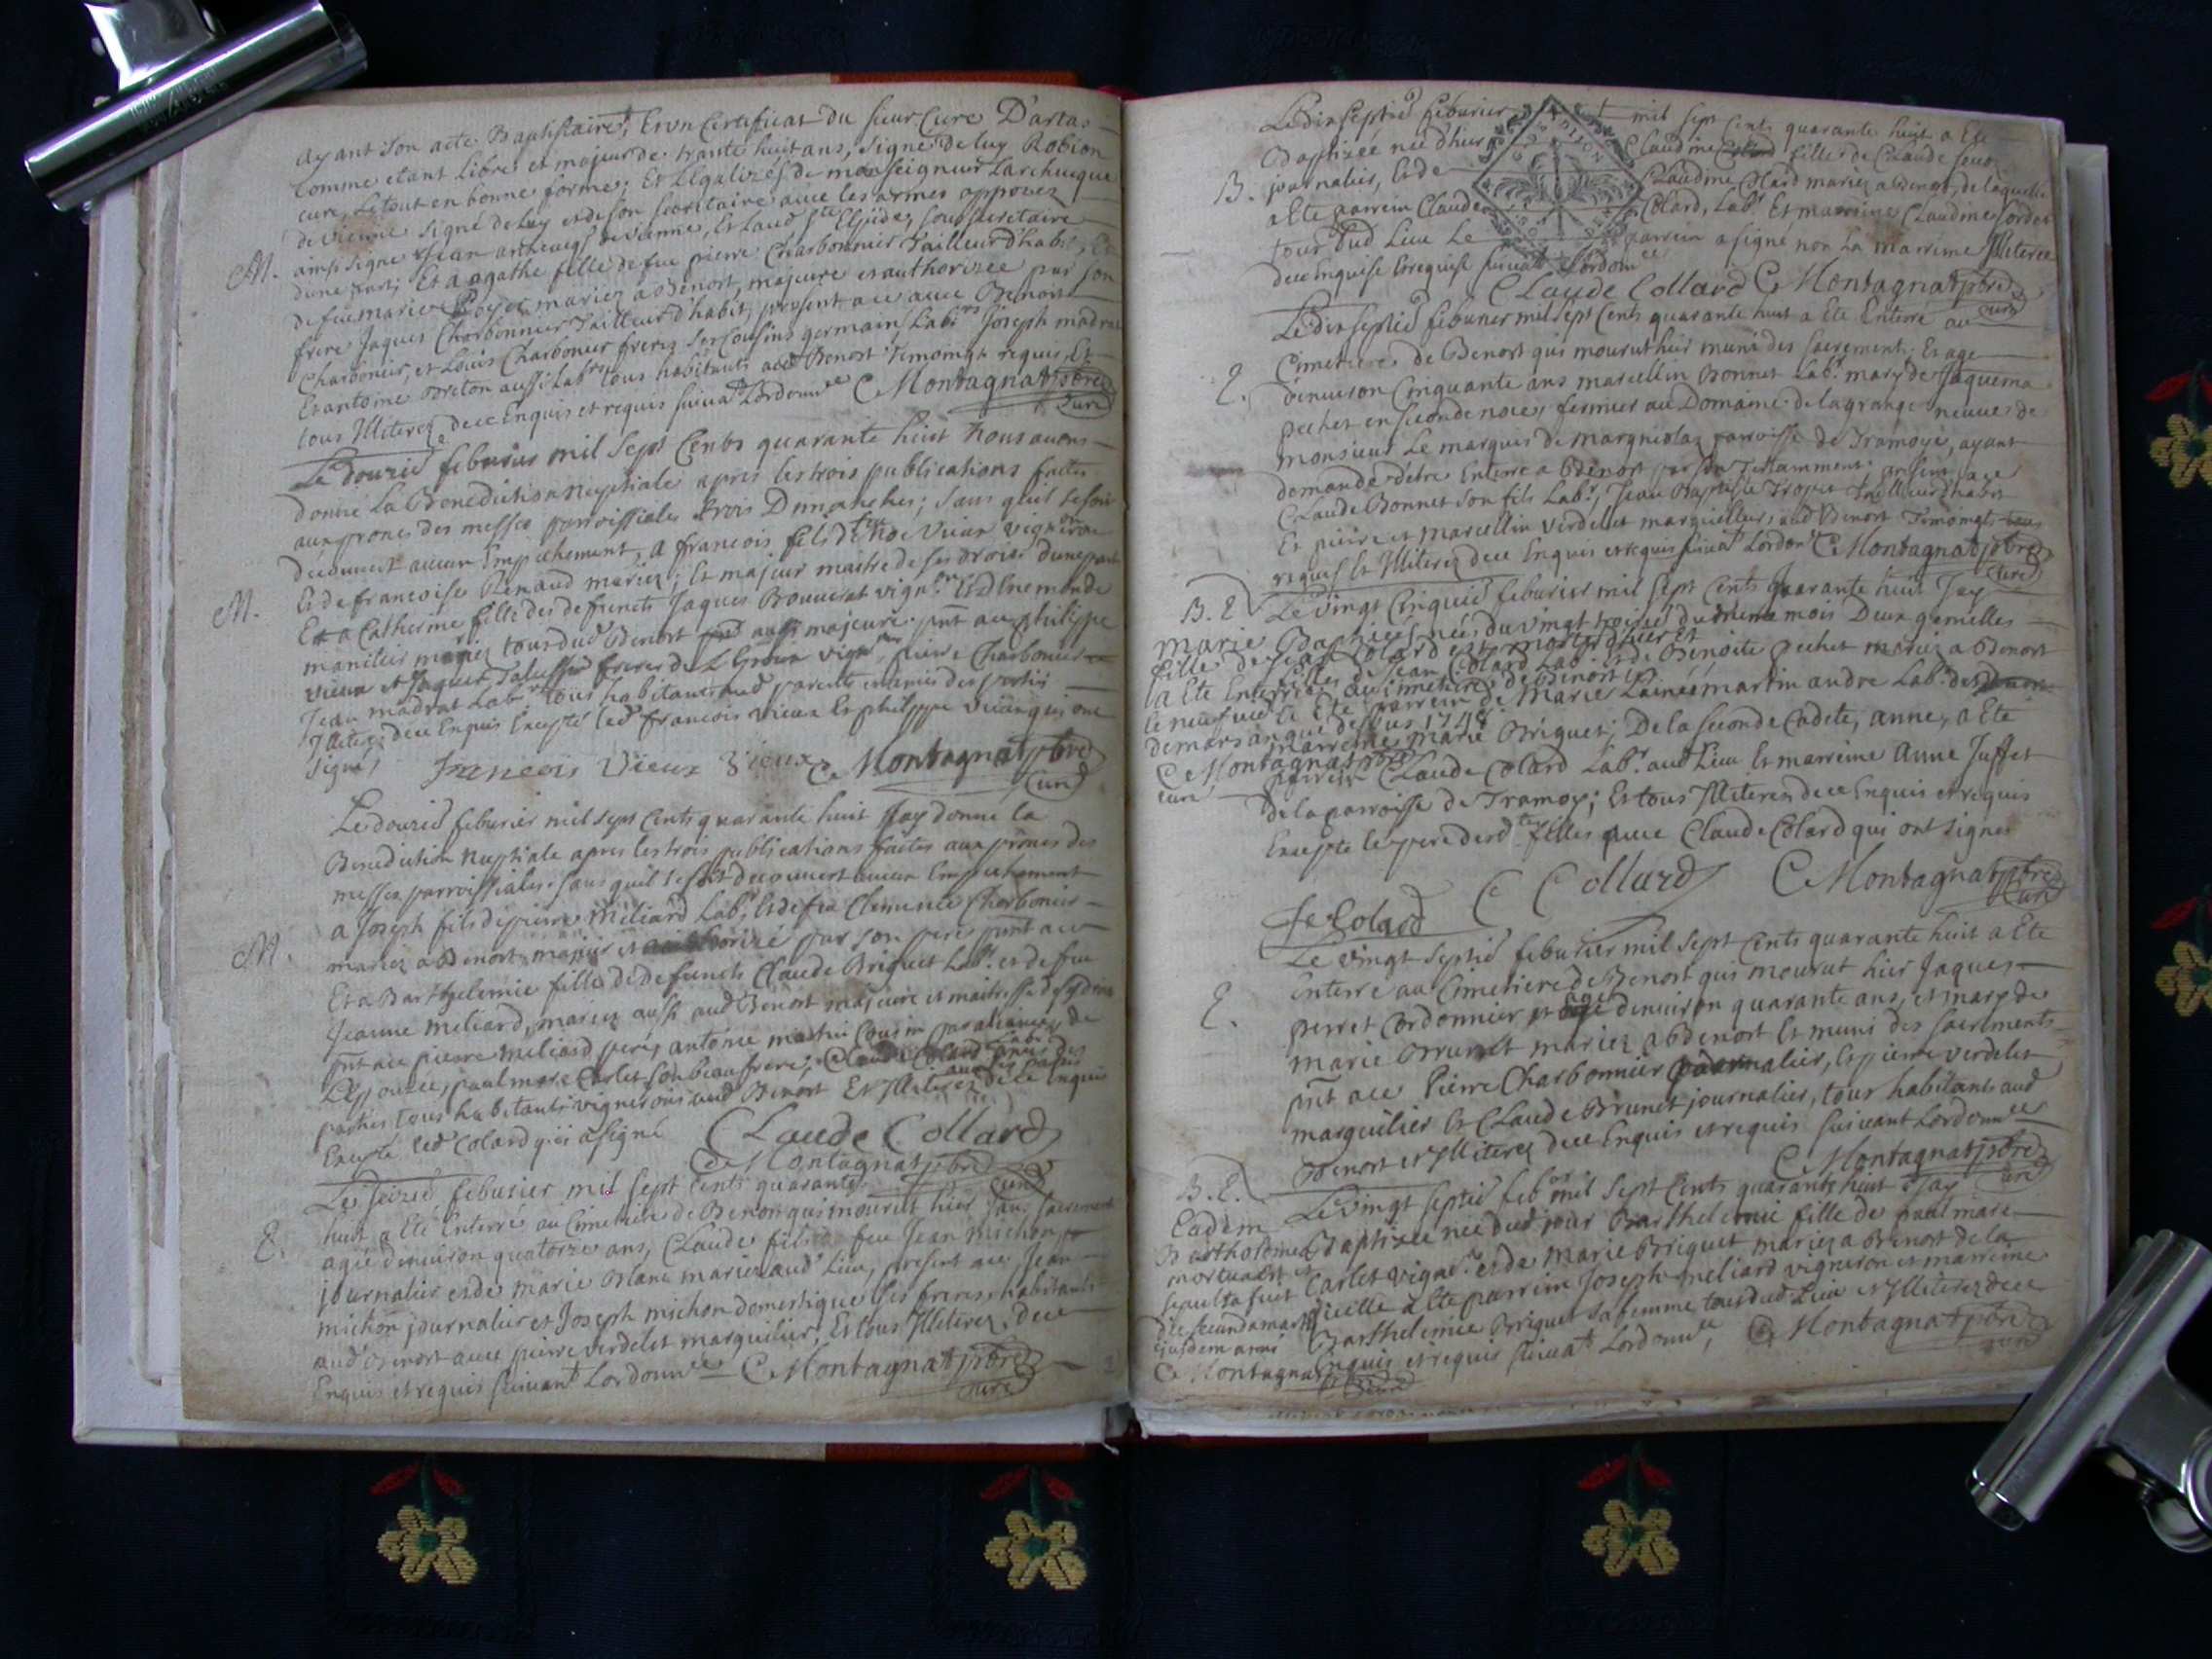 ayant Son acte Baptistaire, Et un Certificat du sieur Cure D'artas
Comme etant Libre et majeur de trante huit ans, signé de luy Robion
cure, Le tout en bonne forme; Et Legalizés de monseigneur Larcheveque
de vienne signé de luy et de son secretaire avec les armes
ainsi signe Jean archeveq de vienne, Et sous secretaire
M.
d'une part; Et a agathe fille de feu pierre Charbonnier Tailleur d'habit, Et
de feue marie mariez a Benost, majeure et authorizée par son
frere Jaques Charbonnier Tailleur d'habit, present ace avec Benost
Charbonier, et Louis Charbonier freres ses Cousins germains Labrs Joseph madrat
Et antoine Breton aussi Labrs tous habitants aud Benost Temoings requis, Et
tous Illiterez de ce Enquis et requis suivat Lordonnce C Montagnat pbre
Curé
Le douzie feburier mil Sept Cents quarante huit Nous avons
donné La Benediction Nuptiale apres les trois publications faites
aux prones des messes parroissiales trois Dimanches; sans quil se soit
decouvert aucun Empechement, a francois fils d' Vieux vigneron
M.
Et de francoise Renaud mariez; Et majeur maitre de ses droits d'une part
Et a Catherine fille des defuncts Jaques Bouverat vign. Et D'Enemonde
manilier mariez tous dud Benost aussi majeure. pnt ace philippe
vieux et Jaques freres de L'Epoux vign pierre Charbonier
Jean madrat Labr tous habitans aud parents et amis des parties
Illiterez de ce Enquis Excepté led francois vieux Et philippe vieux qui ont
signé,
Francois Vieux Vieux C Montagnat pbre
Curé
Le douzie feburier mil sept Cents quarante huit Jay donné la
Benediction Nuptiale apres les trois publications faites aux prones des
messes parroissiales sans quil se soit decouvert aucun Empechement
a Joseph fils de pierre Meliard Labr, Et de feu Clemence Charbonier
M.
mariez a Benost, majeur et authorizé par son pere pnt ace
Et a Barthelemie fille de defuncts Claude Briquet Labr. et de feu
Jeanne Meliard, mariez aussi aud Benost majeure et maitresse de ses droits
pnt ace pierre meliard pere, antoine martin Cousin de
L'Epouzée, paul marc Carlet son beaufrere, Claude Colard
parties tous habitants vignerons aud Benost Et Illiterez de ce Enquis
Excepté led Colard qui a signé Claude Collard
C Montagnat pbre
Curé
Le seizie feburier mil sept Cents quarante
E.
huit a Eté Enterré au Cimetiere de Benost qui mourut hier sans sacrement
agé denviron quatorze ans, Claude fils de feu Jean Michon
journalier et de marie Blanc mariez aud Lieu, present ace Jean
michon journalier et Joseph michon domestique ses freres habitants
aud Benost avec pierre verdelet marguilier, Et tous Illiterez, de ce
Enquis et requis suivant Lordonnce C Montagnat pbre
Curé
Le dix septie feburier mil sept Cents quarante huit a Ete
Baptizée née d'hier Claudine fille de Claude
B.
journalier, Et de Claudine Colard mariez a Benost, de laquelle
a Ete parrein Claude Colard, Labr Et marreine Claudine
tous dud Lieu Le parrein a signé non La marreine Illiterée
de ce Enquise Et requise suivat Lordonce
Claude Collard C Montagnat pbre
Curé
Le dix septie feburier mil sept Cents quarante huit a Ete Enterré au
Cimetiere de Benost qui mourut hier muni des sacrements, Et agé
E.
denviron Cinquante ans marcellin Bonnet Labr. mary de Jaquema
pechet en seconde noces, fermier au Domaine de la grange neuve de
monsieur Le marquis de margniolaz parroisse de Tramoyé, ayant
demandé d'etre Enterré a Benost par son Testamment; present ace
Claude Bonnet son fils Labr, Jean Baptiste Tailleur d'habit
Et pierre et marcellin verdelet marguilliers aud Benost Temoings tous
requis Et Illiterez de ce Enquis et requis suivat Lordonce C Montagnat pbre
Curé
B. E. Le vingt Cinquie feburier mil sept Cents quarante huit Jay
Baptizées nées du vingt troisie du meme mois Deux gemelles
filles de Jean Colard Labr. Et de Benoite pechet mariez a Benost
a Ete parrein de Marie Lainée martin andre Labr.
marreine marie Briquet; De la seconde Cadete, anne, a Ete
parrein Claude Colard Labr. aud Lieu Et marreine Anne Juffet
de la parroisse de Tramoy; Et tous Illiterez de ce Enquis et requis
Excepte le pere desd. filles avec Claude Colard qui ont signés
marie
fille de Jean Colard est morte d'hier Et
a Ete Enterrée au Cimetiere de Benost
le neufvie
de mars an que dessus 1748
C Montagnat pbre
curé
Je Colard C Collard C Montagnat pbre
Curé
Le vingt septie feburier mil sept Cents quarante huit a Ete
Enterré au Cimetiere de Benost qui mourut hier Jaques
E.
perret Cordonnier et agé denviron quarante ans, et mary de
marie Brunet mariez a Benost Et muni des sacrements
pnt ace Pierre Charbonnier journalier, Et pierre verdelet
marguilier Et Claude Brunet journalier, tous habitants aud
Benost et Illiterez de ce Enquis et requis suivant Lordonnce
C Montagnat pbre
Curé
B. E. Le vingt septie feber mil sept Cents quarante huit Jay
Baptizée née dud jour Barthelemie fille de paul marc
Carlet vigner. et de Marie Briquet mariez a Benost de la
quelle a Ete parrein Joseph meliard vigneron et marreine
Barthelemie Briquet sa femme tous dud Lieu et Illiterez de ce
Enquis et requis suivat Lordonnce, C Montagnat pbre
curé
Eadem
Bartholomea
mortua est et
sepulta fuit
die secunda martii
ejusdem anni
C Montagnat pbre
Curé